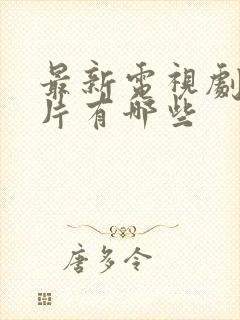 最新電視劇
片有哪些
唐多令